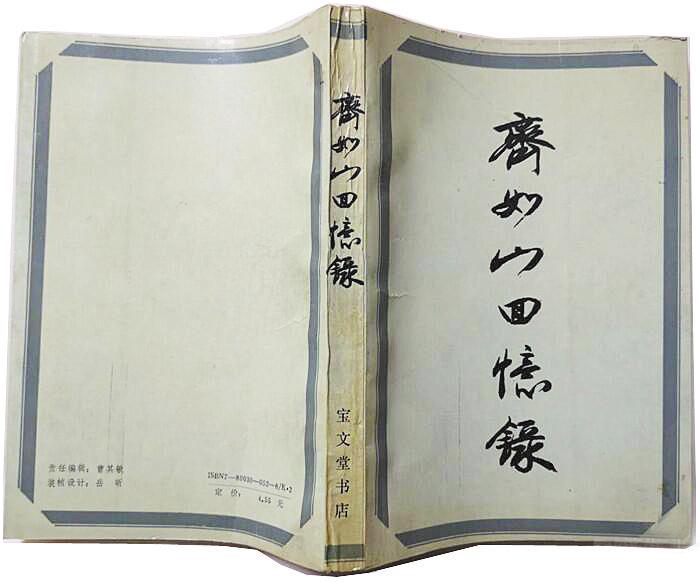 齊如山回憶錄
宝文堂书店
齊如山回憶錄
责任编辑：曹其敏
装帧设计：岳 昕
ISBN7—80030—052—6/K·2
定价： 4.55 元